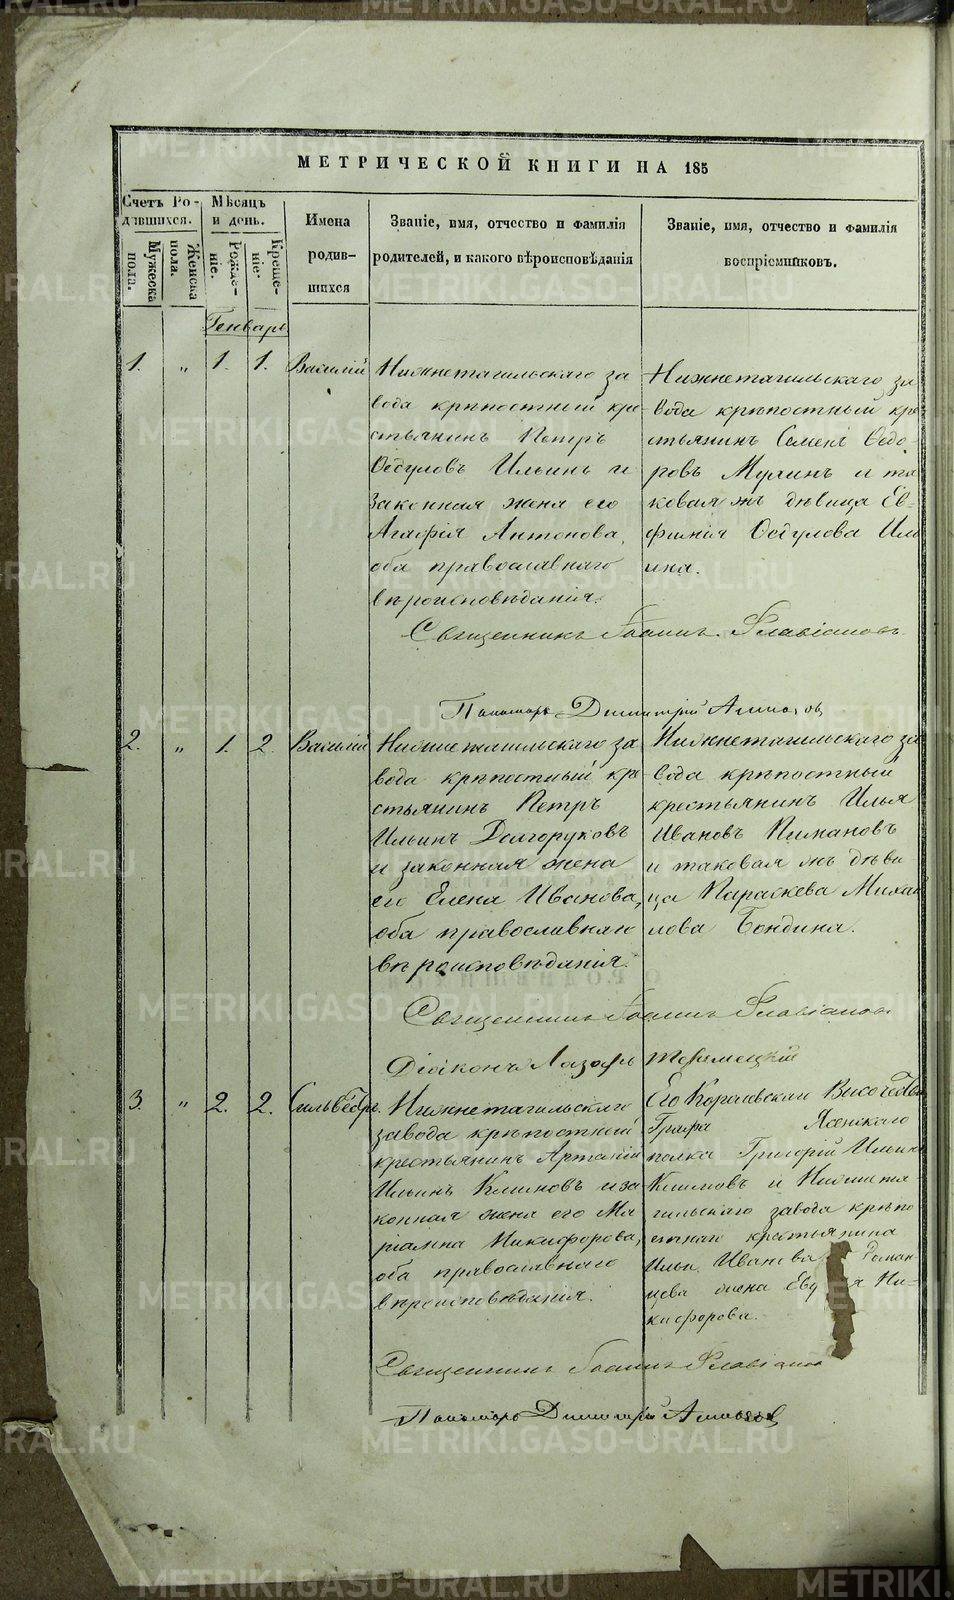 МЕТРИЧЕСКОЙ КНИГИ НА 185
Счетъ Ро-
дившихся.
Мужеска
пола.
Женска
пола.
Мѣсяцъ
и день.
Рожде-
ніе.
Креще-
ніе.
Имена
родив-
шихся
Званіе, имя, отчество и фамилія
родителей, и какого вѣроисповѣданія
Званіе, имя, отчество и фамилія
воспріемниковъ.
Генварь
1. „ 1. 1. Василій
Нижнетагильскаго за
вода крѣпостный кре
стьянинъ Петръ
Ѳедуловъ Ильинъ и
законная жена его
Агафія Антонова,
оба православнаго
вѣроисповѣданія.
Нижнетагильскаго за
вода крѣпостный кре
стьянинъ Семенъ Ѳедо-
ровъ Мулинъ и та
коваяжъ дѣвица Ев-
фимія Ѳедулова Иль
ина.
Священникъ Іоаннъ Флавіановъ
Пономарь Димитрій
2. „ 1. 2. Василій
Нижнетагильскаго за
вода крѣпостный кре
стьянинъ Петръ
Ильинъ Долгоруковъ
и законная жена
его Елена Иванова,
оба православнаго
вѣроисповѣданія.
Нижнетагильскаго за
вода крѣпостный
крестьянинъ Илья
Ивановъ Пимановъ
и таковая жъ дѣви
ца Параскева Михай
лова Бондина.
Священникъ Іоаннъ Флавіановъ
Діаконъ Лазарь
3. „ 2. 2. Сильвестръ.
Нижнетагильскаго
завода крѣпостный
крестьянинъ Артемій
Ильинъ Климовъ и за
конная жена его Ма
ріамна Никифорова,
оба православнаго
вѣроисповѣданія.
Его Королевскаго Высочества
полка Григорій Ильинъ
Климовъ и Нижнета-
гильскаго завода крѣпо
стнаго крестьянина
Ильи Иванова Роман
цева жена Ни-
кифорова.
Священникъ Іоаннъ Флавіановъ
Пономарь Димитрій
METRIKI.GASO-URAL.RU